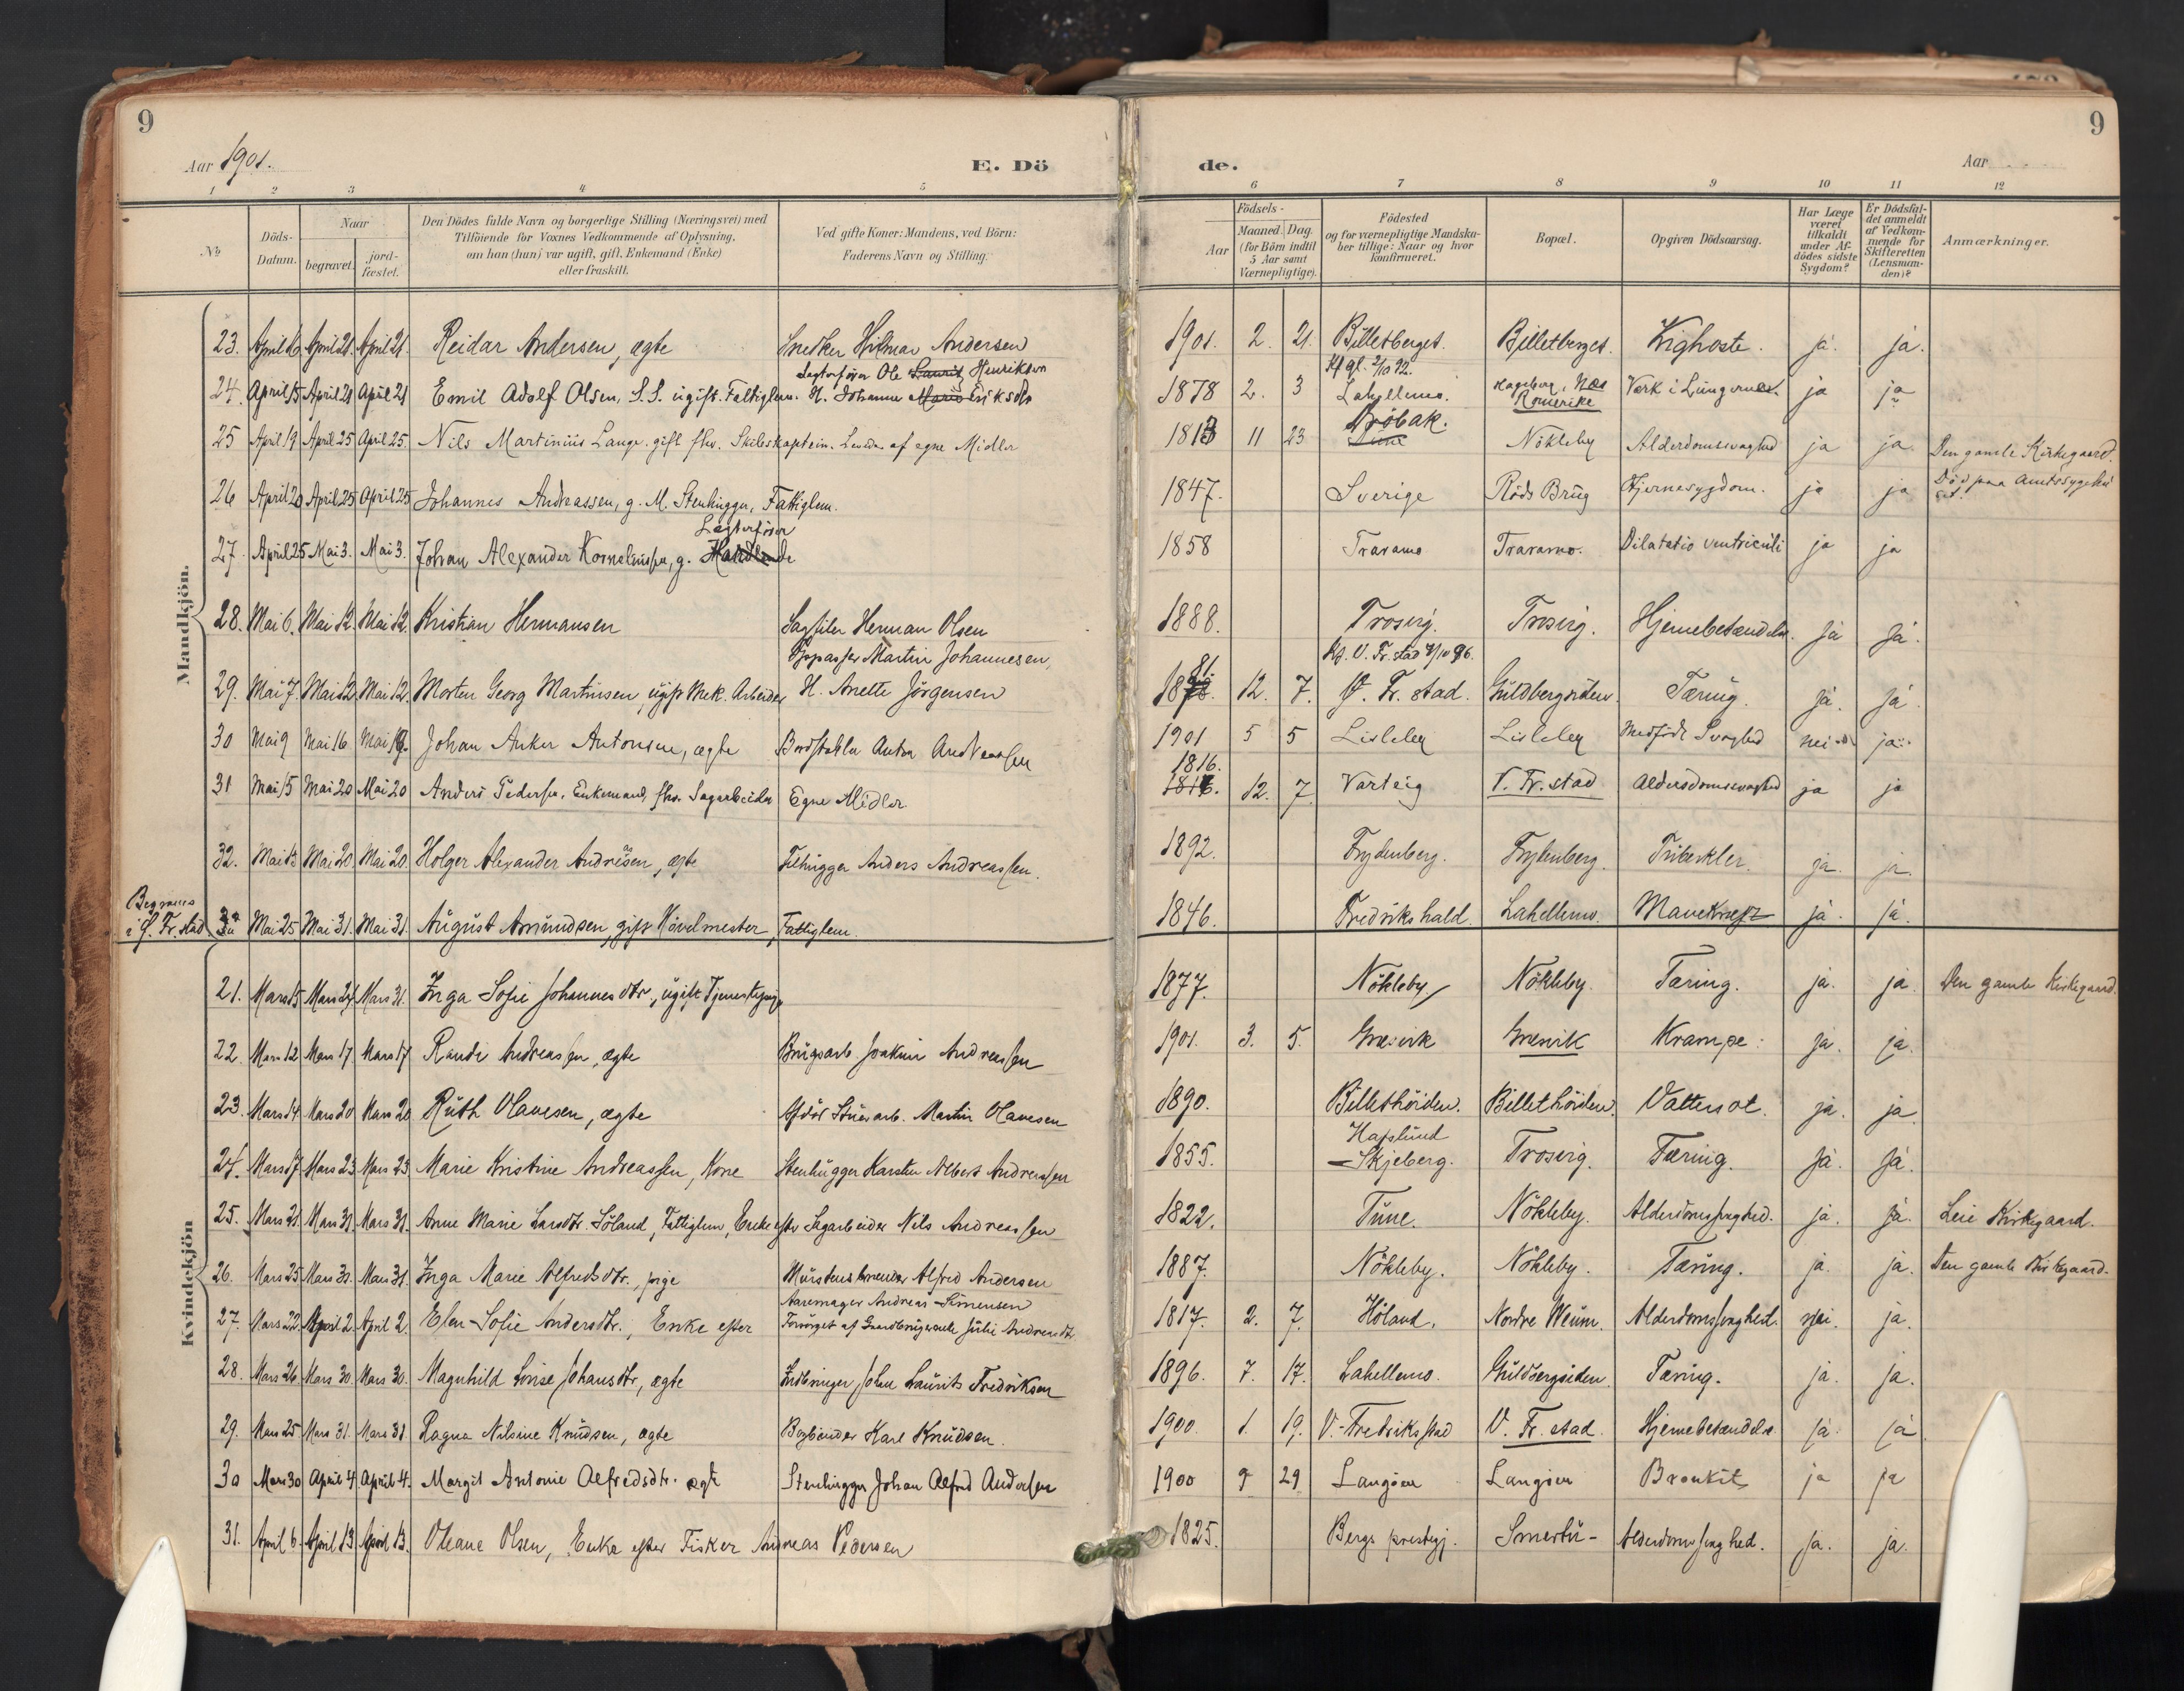 9
9
Aar 1901.
E. Dö
de.
Aar
1 2 3 4 5 6 7 8 9 10 11 12
No
Döds-Datum.
Naar
begravet.
jord-fæstet.
Den Dödes fulde Navn og borgerlige Stilling (Næringsvei) med
Tilföiende for Voxnes Vedkommende af Oplysning,
om han (hun) var ugift, gift, Enkemand (Enke)
eller fraskilt.
Ved gifte Koner: Mandens, ved Börn:
Faderens Navn og Stilling.
Födsels-
Aar
Maaned. Dag.
(for Börn indtil
5 Aar samt
Værnepligtige).
Födested
og for værnepligtige Mandska-
ber tillige: Naar og hvor
konfirmeret.
Bopæl.
Opgiven Dödsaarsag.
Har Læge
været
tilkaldt
under Af-
dödes sidste
Sygdom?
Er Dödsfal-
det anmeldt
af Vedkom-
mende for
Skifteretten
(Lensman-
den)?
Anmærkninger.
Mandkjön.
23. April 16 April 21. April 21. Reidar Andersen, ægte Snedker Hilmar Andersen 1901. 2. 21. Billetberget. Billetberget. Kighoste. ja. ja.
Lagterfören Ole Laurits Henriksen Kf. gl. 2/10 92.
24. April 15 April 21 April 21 Emil Adolf Olsen, S.S. ugift. Fattiglem. H. Johanne Marie Eriksdtr 1878 2. 3 Lahellemo. Hageberg, Næs Romerike Værk i Lungerne ja ja
25 April 19 April 25 April 25 Nils Martinius Lange. gift fhv. Skibskaptein. Levede af egne Midler 1813 11 23 Dröbak. Tune Nökleby Alderdomssvaghed ja ja. Den gamle Kirkegaard.
26 April 20 April 25 April 25 Johannes Andreassen, g. M. Stenhugger, Fattiglem. 1847. Sverige Röds Brug Hjernesygdom. ja ja Död paa Amtssygehuset.
Lægterförer
27. April 25 Mai 3. Mai 3. Johan Alexander Kornelius, g. Handlende 1858 Traramo Traramo. Dilatatio ventriculi ja ja
28. Mai 6. Mai 12. Mai 12. Kristian Hermansen Sagfiler Herman Olsen 1888. Trosvig. Trosvig. Hjernebetændelse. ja ja.
Oppasser Martin Johannesen, Kf. V. Fr. stad 4/10 96.
29. Mai 7. Mai 12. Mai 12. Morten Georg Martinsen, ugift Mek. Arbeider H. Anette Jörgensen 1881 12. 7. V. Fr. stad. Guldbergsiden. Tæring. ja. ja.
30 Mai 9 Mai 16. Mai 19. Johan Anker Antonsen, ægte Bordstabler Anton Andreassen 1901 5 5 Lisleby Lisleby Medfödt Svaghed nei ja
1816.
31 Mai 15 Mai 20 Mai 20 Anders Pedersen. Enkemand, fhv. Sagarbeider Egne Midler. 1816. 12. 7. Varteig V. Fr. stad Alderdomssvaghed ja ja
32. Mai 13 Mai 20. Mai 20. Holger Alexander Andreasen, ægte Filhugger Anders Andreassen. 1892. Frydenberg. Frydenberg. Tuberkler. ja. ja.
Begraves
i Ö. Fr. stad 32a Mai 25 Mai 31. Mai 31. August Amundsen, gift Hövelmester, Fattiglem. 1846. Fredrikshald. Lahellemo. Mavekræft ja. ja.
Kvindekjön
21. Mars 15 Mars 24 Mars 31. Inga Sofie Johannesdtr., ugift Tjenestepige 1877. Nökleby Nökleby. Tæring. ja. ja. Den gamle Kirkegaard.
22. Mars 12 Mars 17. Mars 17 Randi Andreassen, ægte Brugsarb. Joakim Andreassen 1901. 3. 5. Græsvik Græsvik Krampe. ja. ja.
23. Mars 14 Mars 20 Mars 20. Ruth Olavesen, ægte Afdöd Stuearb. Martin Olavesen 1890. Billethöiden. Billethöiden. Vattersot. ja. ja
24. Mars 17 Mars 23. Mars 23. Marie Kristine Andreassen, Kone Stenhugger Karsten Albert Andreassen 1855. Hafslund Skjeberg. Trosvig. Tæring. ja. ja.
25. Mars 21. Mars 31. Mars 31. Anne Marie Larsdtr. Söland, Fattiglem, Enke efter Sagarbeider Nils Andreassen 1822. Tune. Nökleby. Alderdomssvaghed. ja. ja. Leie Kirkegaard.
26. Mars 25 Mars 31. Mars 31. Inga Marie Alfredsdtr., pige Murstensbrænder Alfred Andersen 1887. Nökleby. Nökleby. Tæring. ja. ja. Den gamle Kirkegaard.
Aaremager Andreas Simensen
27. Mars 22. April 2. April 2. Elen Sofie Andersdtr., Enke efter Forsörget af Gaardbrugerenke Julie Andreasdtr. 1817. 2. 7. Höland. Nordre Weum. Alderdomssvaghed. nei. ja.
28. Mars 26. Mars 30. Mars 30. Magnhild Lovise Johansdtr, ægte Indbringer Johan Laurits Fredriksen 1896. 7. 17. Lahellemo. Guldbergsiden. Tæring. ja. ja.
29. Mars 25 Mars 31. Mars 31. Ragna Nilsine Knudsen, ægte Bogbinder Karl Knudsen. 1900. 1. 19. V. Fredriksstad V. Fr. stad. Hjernebetændelse ja ja
30 Mars 30 April 4 April 4. Margit Antonie Alfredsdtr. ægte Stenhugger Johan Alfred Andersen 1900 9 29 Langöen Langöen Bronkit ja ja
31. April 6. April 13 April 13. Oleane Olsen, Enke efter Fisker Andreas Pedersen 1825. Bergs prestegj. Smertu- Alderdomssvaghed. ja. ja.